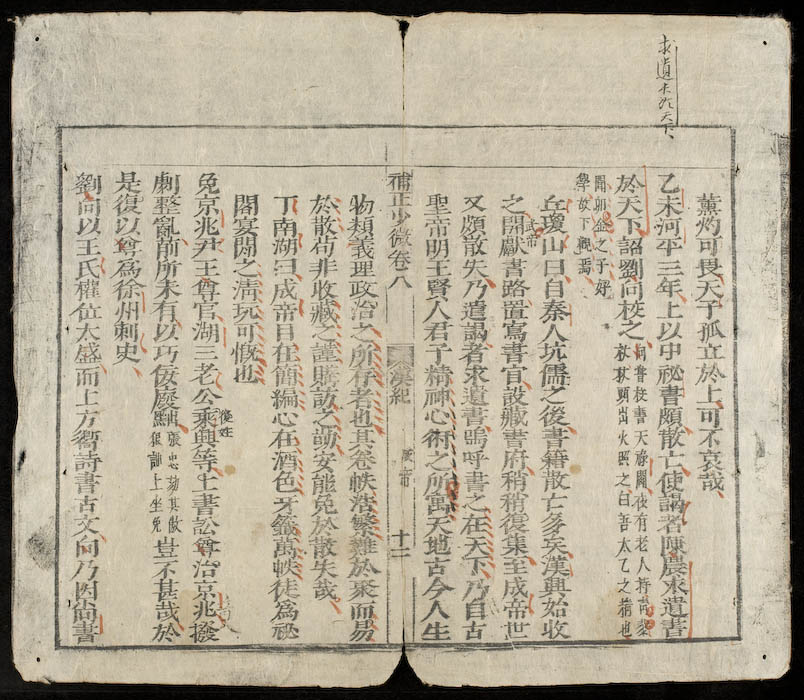 求遺書於天下
薰灼可畏天子孤立於上可不哀哉
乙未河平三年上以中祕書頗散亡使謁者陳農求遺書
於天下詔劉向校之
向嘗校書天祿閣夜有老人持青藜
杖杖頭出火照之曰吾太乙之精也
聞卯金之子好
學故下觀焉
丘瓊山曰自秦人坑儒之後書籍散亡多矣漢興始收
之開獻書路置寫書官設藏書府稍稍復集至成帝世
武帝
又頗散失乃遣謁者求遺書嗚呼書之在天下乃自古
聖帝明王賢人君子精神心術之所寓天地古今人生
補正少微卷八
漢紀
成帝
十二
物類義理政治之所存者也其卷帙浩繁難於聚而易
於散苟非收藏之謹購訪之勤安能免於散失哉
丁南湖曰成帝目在簡編心在酒色牙籤萬帙徒為祕
閣宴閒之清玩可慨也
免京兆尹王尊官湖三老公乘興等上書訟尊治京兆撥
復姓
劇整亂前所未有以巧佞廢黜
張忠劾其傲
很訕上坐免
豈不甚哉於
是復以尊為徐州刺史
劉向以王氏權位太盛而上方嚮詩書古文向乃因尚書